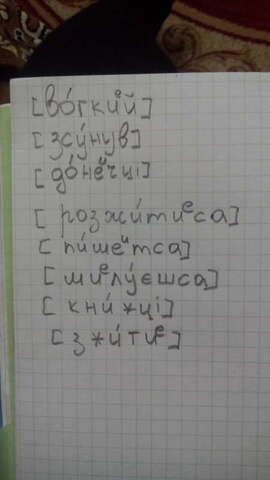 [во́гкиᵉй]
[зсу́нув]
[до́неᶦчці]
[розжи́тиᵉса]
[пи́шеᶦᶦтса]
[миᵉлу́єшса]
[кни́жці]
[зжи́тиᵉ]